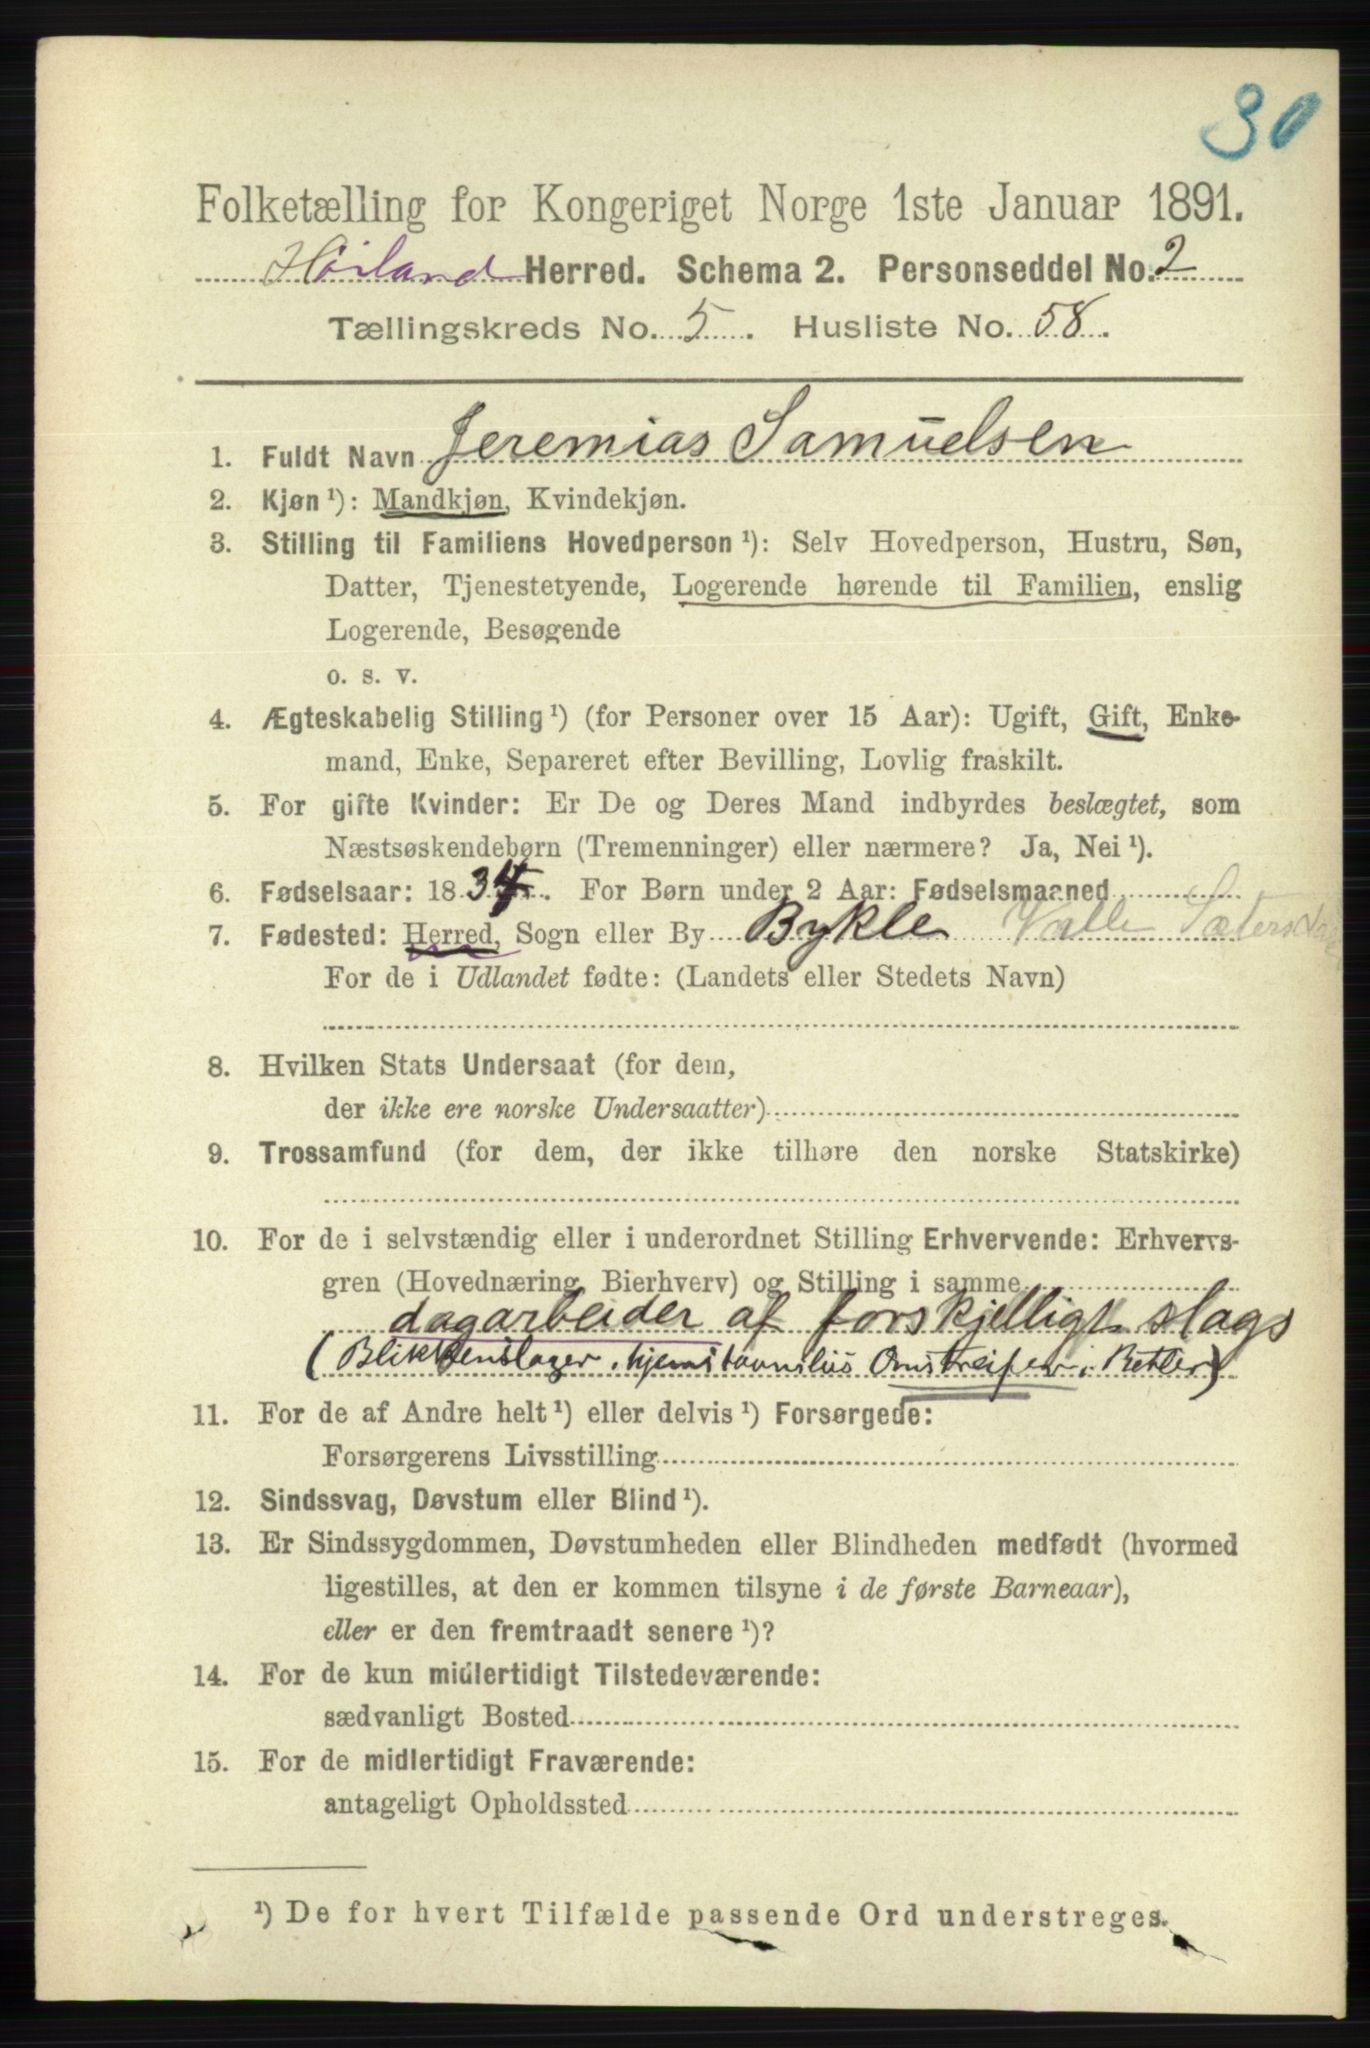 30
Folketælling for Kongeriget Norge 1ste Januar 1891.
Høiland Herred. Schema 2. Personseddel No. 2
Tællingskreds No. 5. Husliste No. 58.
1. Fuldt Navn Jeremias Samuelsen
2. Kjøn ¹): Mandkjøn, Kvindekjøn.
3. Stilling til Familiens Hovedperson ¹): Selv Hovedperson, Hustru, Søn,
Datter, Tjenestetyende, Logerende hørende til Familien, enslig
Logerende, Besøgende
o. s. v.
4. Ægteskabelig Stilling ¹) (for Personer over 15 Aar): Ugift, Gift, Enke-
mand, Enke, Separeret efter Bevilling, Lovlig fraskilt.
5. For gifte Kvinder: Er De og Deres Mand indbyrdes beslægtet, som
Næstsøskendebørn (Tremenninger) eller nærmere? Ja, Nei ¹).
6. Fødselsaar: 1834. For Børn under 2 Aar: Fødselsmaaned
7. Fødested: Herred, Sogn eller By Bykle Valle Sætersdal
For de i Udlandet fødte: (Landets eller Stedets Navn)
8. Hvilken Stats Undersaat (for dem,
der ikke ere norske Undersaatter)
9. Trossamfund (for dem, der ikke tilhøre den norske Statskirke)
10. For de i selvstændig eller i underordnet Stilling Erhvervende: Erhvervs-
gren (Hovednæring, Bierhverv) og Stilling i samme
dagarbeider af forskjelligt slags
(Blikkenslager, hjemstavnsløs Omstreifer, Betler)
11. For de af Andre helt ¹) eller delvis ¹) Forsørgede:
Forsørgerens Livsstilling
12. Sindssvag, Døvstum eller Blind ¹).
13. Er Sindssygdommen, Døvstumheden eller Blindheden medfødt (hvormed
ligestilles, at den er kommen tilsyne i de første Barneaar),
eller er den fremtraadt senere ¹)?
14. For de kun midlertidigt Tilstedeværende:
sædvanligt Bosted
15. For de midlertidigt Fraværende:
antageligt Opholdssted
¹) De for hvert Tilfælde passende Ord understreges.